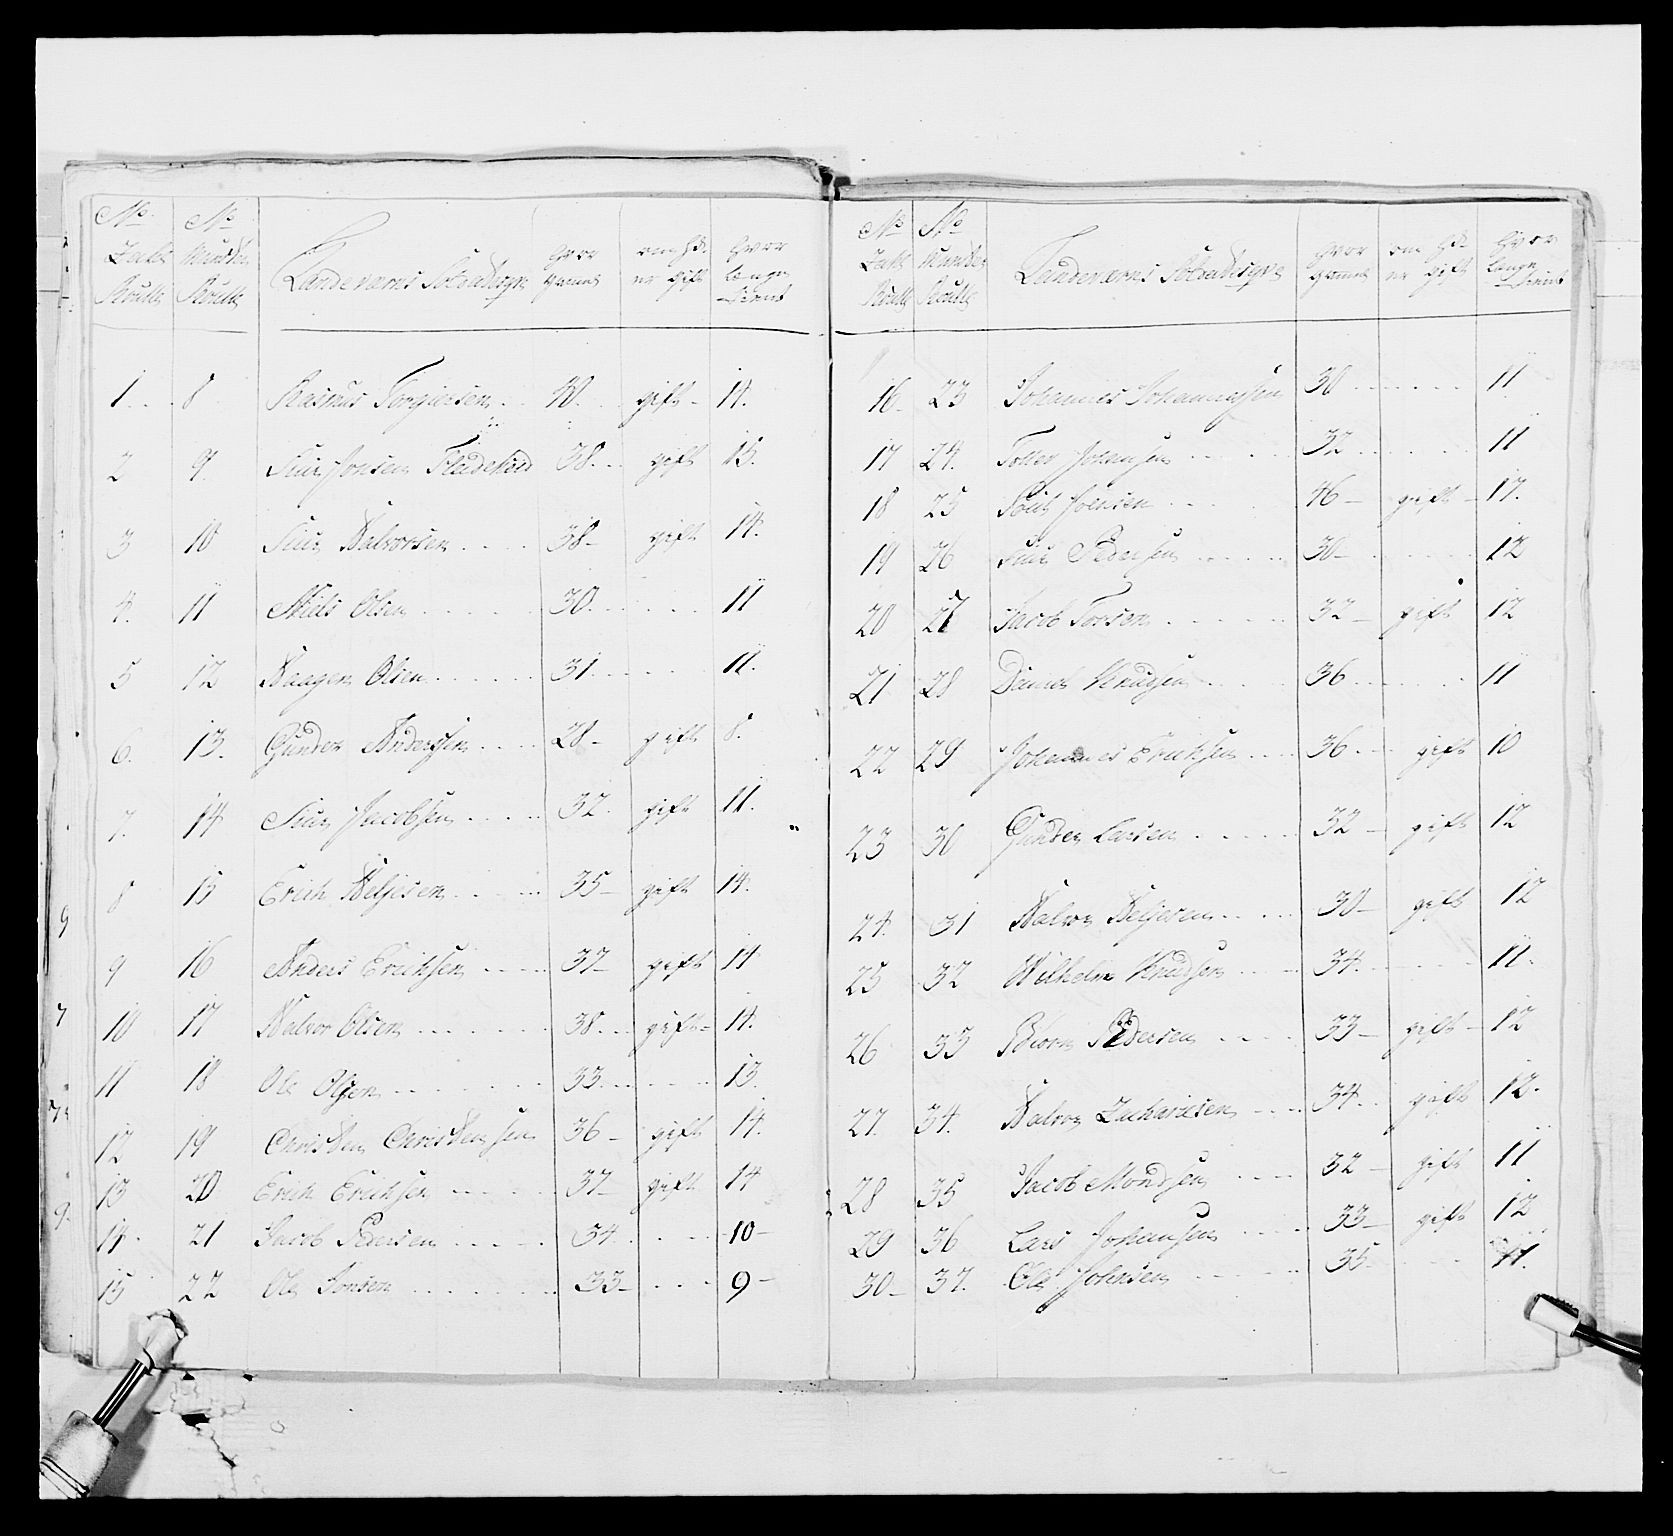 No No Hvor om Hd. Hvor
Rulle Rulle Landeværns Soldaterne Gammel er Gift længe Tient
1 8 Rasmus Torgiersen 40 gift 14.
2 9 Siur Jonsen 38 gift 15.
3 10 Siur Halvorsen 38 gift 14.
4. 11 Niels Olsen 30 11
5 12 Haagen Olsen 31 11.
6. 13. Gunder Anderssen 28 gift 8.
7. 14 Siur Jacobsen 32. gift 11.
8 15 Erich Keljesen 35 gift 14.
9 16 Anders Erichsen 37 gift 14
10 17 Halvor Olsen 38 gift 14.
11 18 Ole Olsen 33 13.
12 19 Christen Christensen 36 gift 14.
13 20 Erich Erichsen 37 gift 14
14. 21 Jacob Pedersen 34 10
15 22 Ole Tonsen 33 9
No No Hvor om Hd. Hvor
Rulle Rulle Landeværns Soldaterne Gammel er Gift længe Tient
16. 23 Johannes Johannessen 30 11
17 24. Johansen 32 11
18 25 Joensen 46 gift 17.
19 26 Siur Pedersen 30 12
20 27 Jacob Torsen 32 gift 12
21 28 Knudsen 36 11
22 29 Johannes Erichsen 36 gift 10
23 30 Gunder Larsen 32 gift 12
24. 31 Halvor Keljesen 30 gift 12
25 32 Wilhelm Knudsen 34 11.
26 33 Biorn Pedersen 33 gift 12
27. 34. Halvor Zachariesen 34 gift 12.
28 35 Jacob Mondsen 32 gift 11
29 36 Lars Johansen 33 gift 12
30 37. Ole Johnsen 35 11.